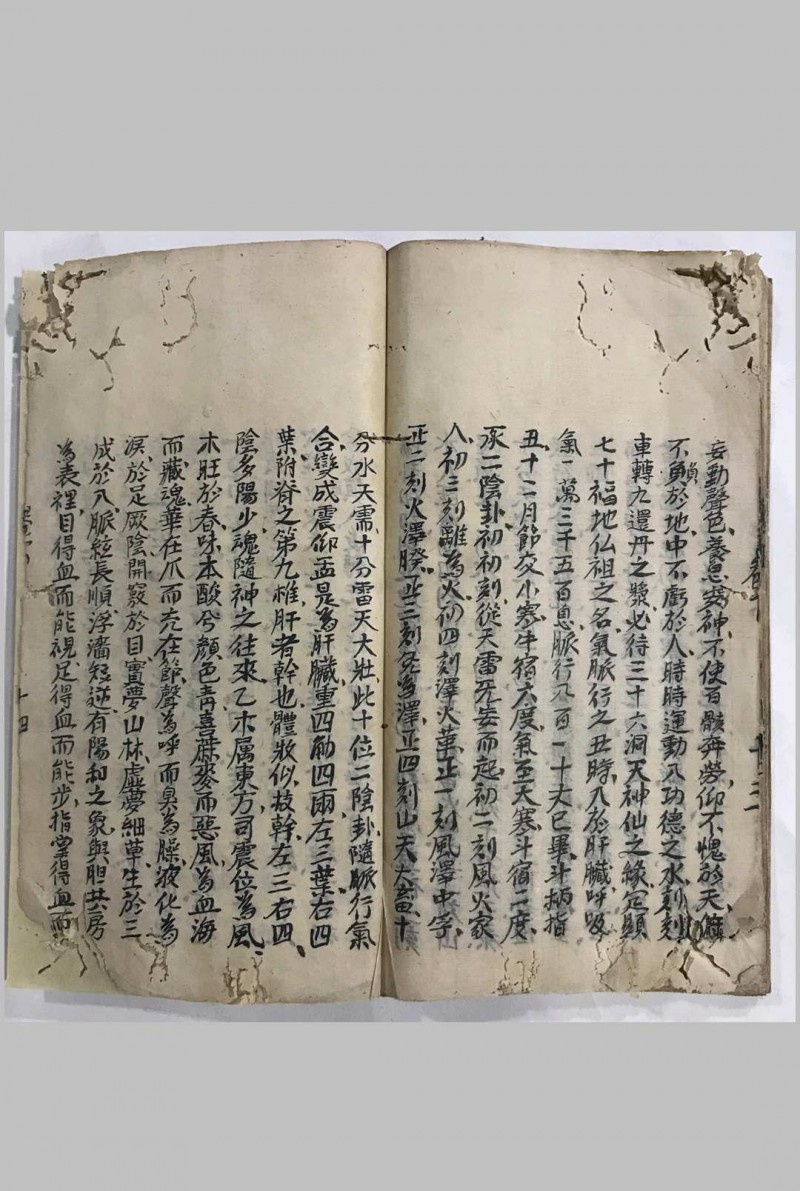 妄動聲色、養息安神、不使百骸奔勞、仰不愧於天、俯
不負於地、中不虧於人、時時運動八功德之水、刻刻
車轉九還丹之漿、必待三十六洞天神仙之錄、定顯
七十福地仏祖之名、氣脈行之丑時、入於肝臟、呼吸
氣一萬三千五百息、脈行八百一十丈已畢、斗柄指
丑、十二月節交小寒、牛宿六度、氣至大寒、斗宿二度、
承二陰卦、初初刻、從天雷旡妄而起、初二刻風火家
人、初三刻離為火、初四刻澤火革、正一刻風澤中孚、
正二刻火澤睽、正三刻兌為澤、正四刻山天大畜、十
分水天需、十分雷天大壯、此十位二陰卦、隨脈行氣
合、變成震仰盂、是為肝臟、重四觔四兩、左三葉、右四
葉、附脊之第九椎、肝者幹也、體狀似枝幹、左三右四、
陰多陽少、魂隨神之往來、乙木属東方、司震位為風、
木旺於春、味本酸兮顏色青、喜蔴麥而惡風、為血海
而藏魂、華在爪而充在節、聲為呼而臭為臊、液化為
淚、於足厥陰、開竅於目、實夢山林、虛夢細草、生於三
成於八、脈絃長順、浮濇短逆、有陽和之象、與胆共房
為表裡、目得血而能視、足得血而能步、指掌得血而
十四